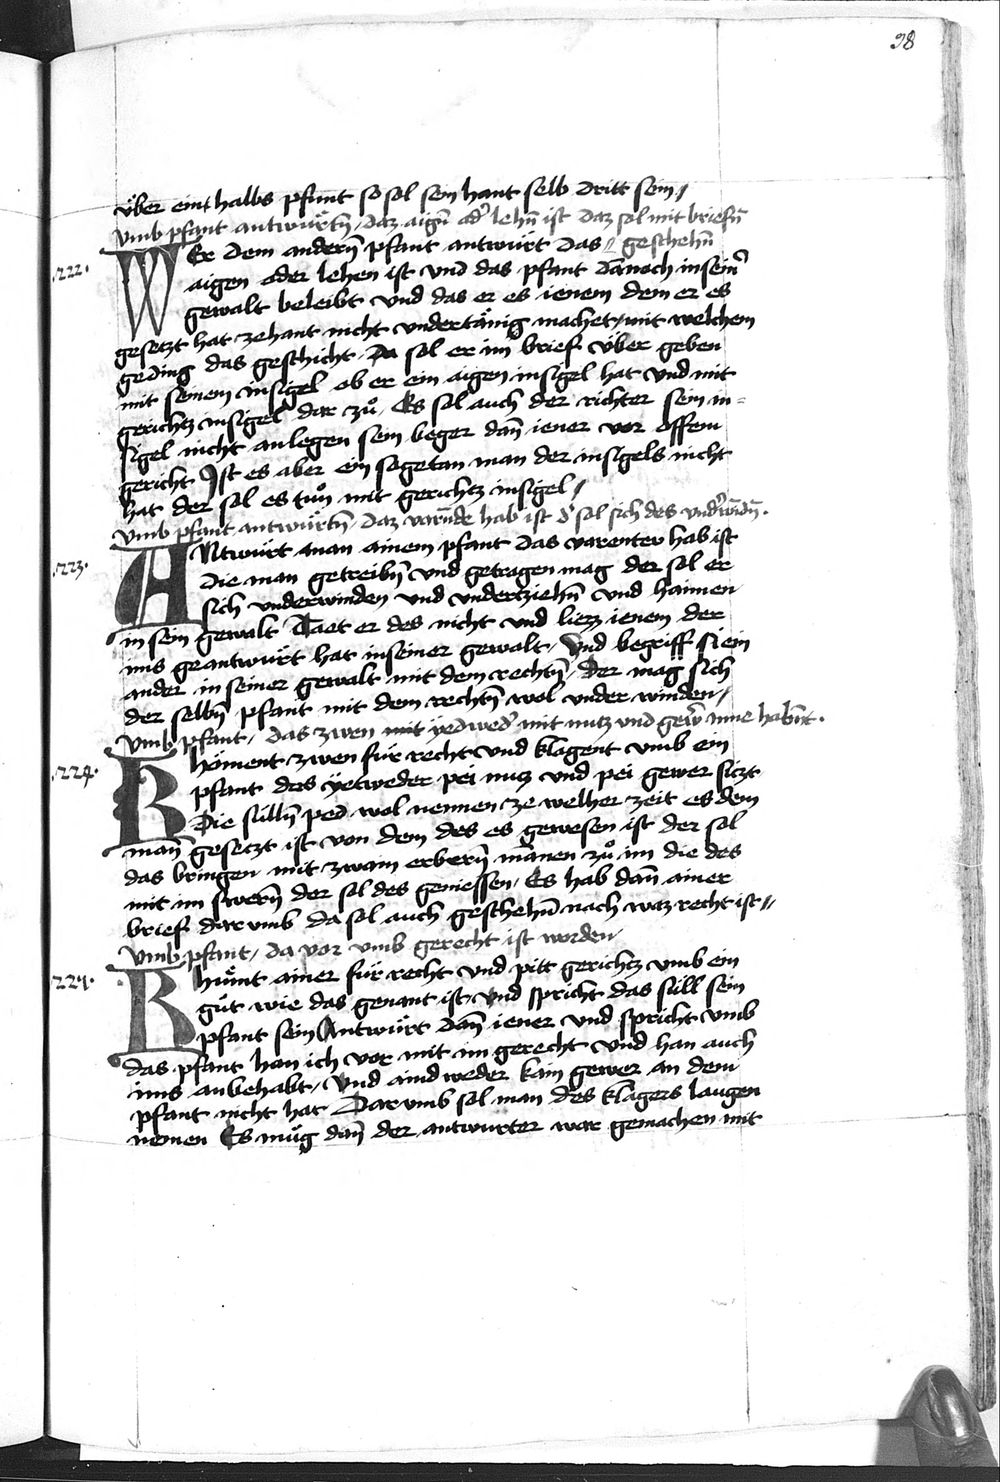 98
über ein halbs pfunt so sol sein hant selb dritt sein
vmb pfant antwürtn̄ daz aign̄ od' lehn̄ ist daz sol mit briefn̄
geschehn̄
222. WEr dem andern̄ pfant antwürt das
aigen oder lehen ist vnd das pfant dānoch in sein'
gewalt beleibt vnd das er es ienem dem er es
gesetzt hat zehant nicht vndertänig machet mit welchem
geding das geschicht Da sol er im brief über geben
mit seinem insigel ob er ein aigen insigel hat vnd mit
gerichtz insigel dar zů Es sol auch der richter sein in=
sigel nicht anlegen sein beger dañ iener vor offem
gericht Ist es aber ein sogetan man der insigels nicht
hat der sol es tůn mit gerichtz insigel
vmb pfant antwürtn̄ daz varn̄de hab ist d' sol sich des vnd'windn̄.
223. ANtwürt man ainem pfant das varenter hab ist
die man getreibn̄ vnd getragen mag der sol er
sich vnderwinden vnd vndertziehn̄ vnd haimen
in sein gewalt Taet er des nicht vnd liezz ienem der
ims geantwürt hat in seiner gewalt Vnd begriff si ein
ander in seiner gewalt mit dem rechtn̄ der mag sich
der selbn̄ pfant mit dem rechtn̄ wol vnder winden
vmb pfant das zwen mit yedwed' mit nutz vnd gew' inne habnt.
224. Khöment zwen für recht vnd klagent vmb ein
pfant das yetweder pei nutz vnd pei gewer siczt
Die sülln̄ ped wol nennen ze welher zeit es dem
mañ gesetzt ist von dem des es gewesen ist der sol
das bringen mit zwain erbern̄ mānen zů im die des
mit im swern̄ der sol des geniessen Es hab dañ ainer
brief dar vmb da sol auch geschehn̄ nach waz recht ist
vmb pfant da vor vmb gerecht ist worden
225. Khümt ainer für recht vnd pitt gerichtz vmb ein
gůt wie das genant ist Vnd spricht das süll sein
pfant sein Antwürt dañ iener vnd spricht vmb
das pfant han ich vor mit im gerecht vnd han auch
ims anbehabt Vnd aindweder kain gewer an dem
pfant nicht hat Dar vmb sol man des klagers laugen
nemen Es müg dañ der antwurter war gemachen mit